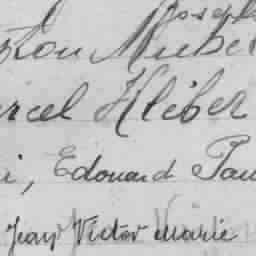 Joseph
rcel Kléber
i, Edouard Pau
Jean Victor Marie